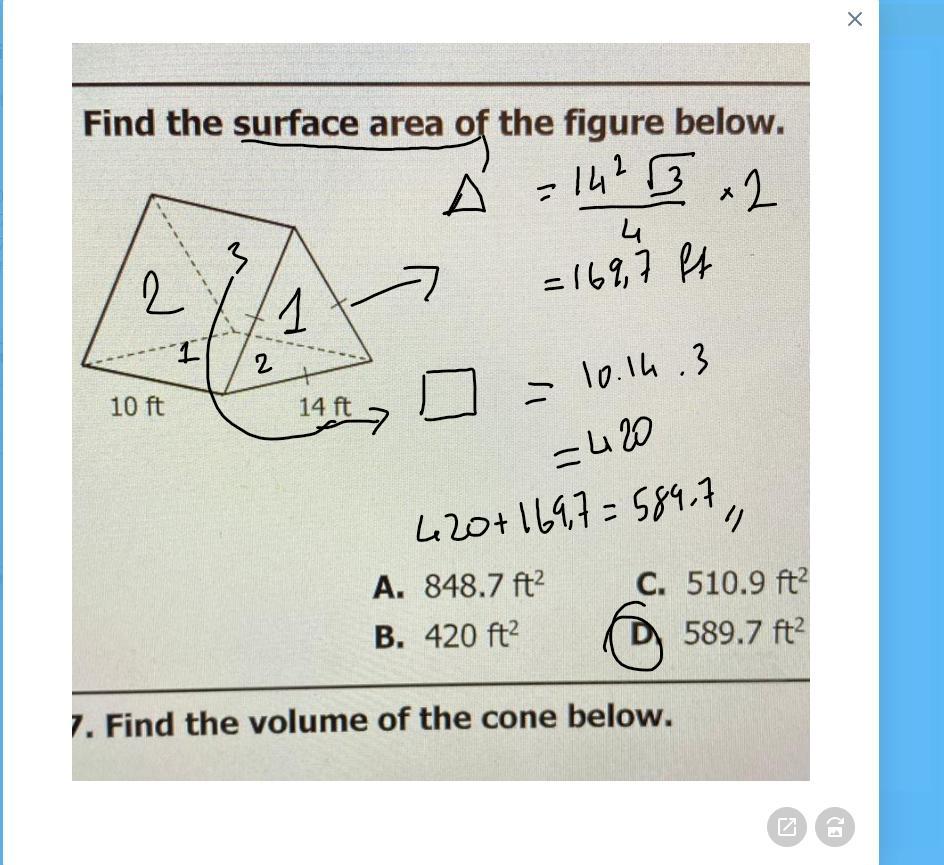 Find the surface area of the figure below.
△ = 14² √3 / 4 × 2
= 169,7 ft
3
2
1
1
2
10 ft
14 ft
□ = 10.14 . 3
= 420
420 + 169,7 = 589.7 //
A. 848.7 ft²
C. 510.9 ft²
B. 420 ft²
D. 589.7 ft²
7. Find the volume of the cone below.